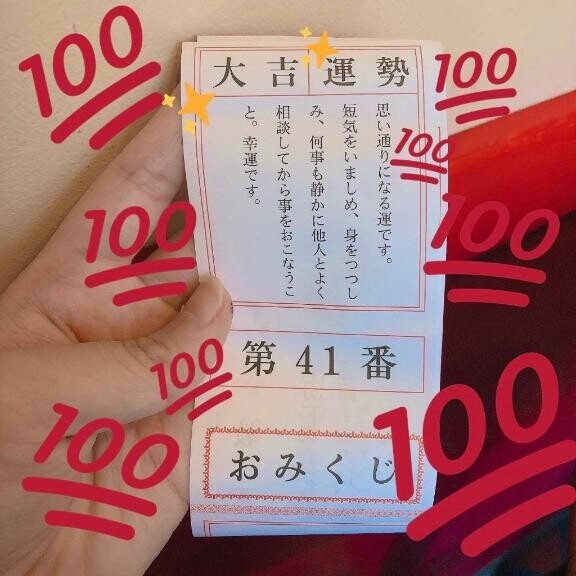 大吉 運勢
思い通りになる運です。
短気をいましめ、身をつつし
み、何事も静かに他人とよく
相談してから事をおこなうこ
と。幸運です。
第41番
おみくじ
100
100
100
100
100
100
100
100